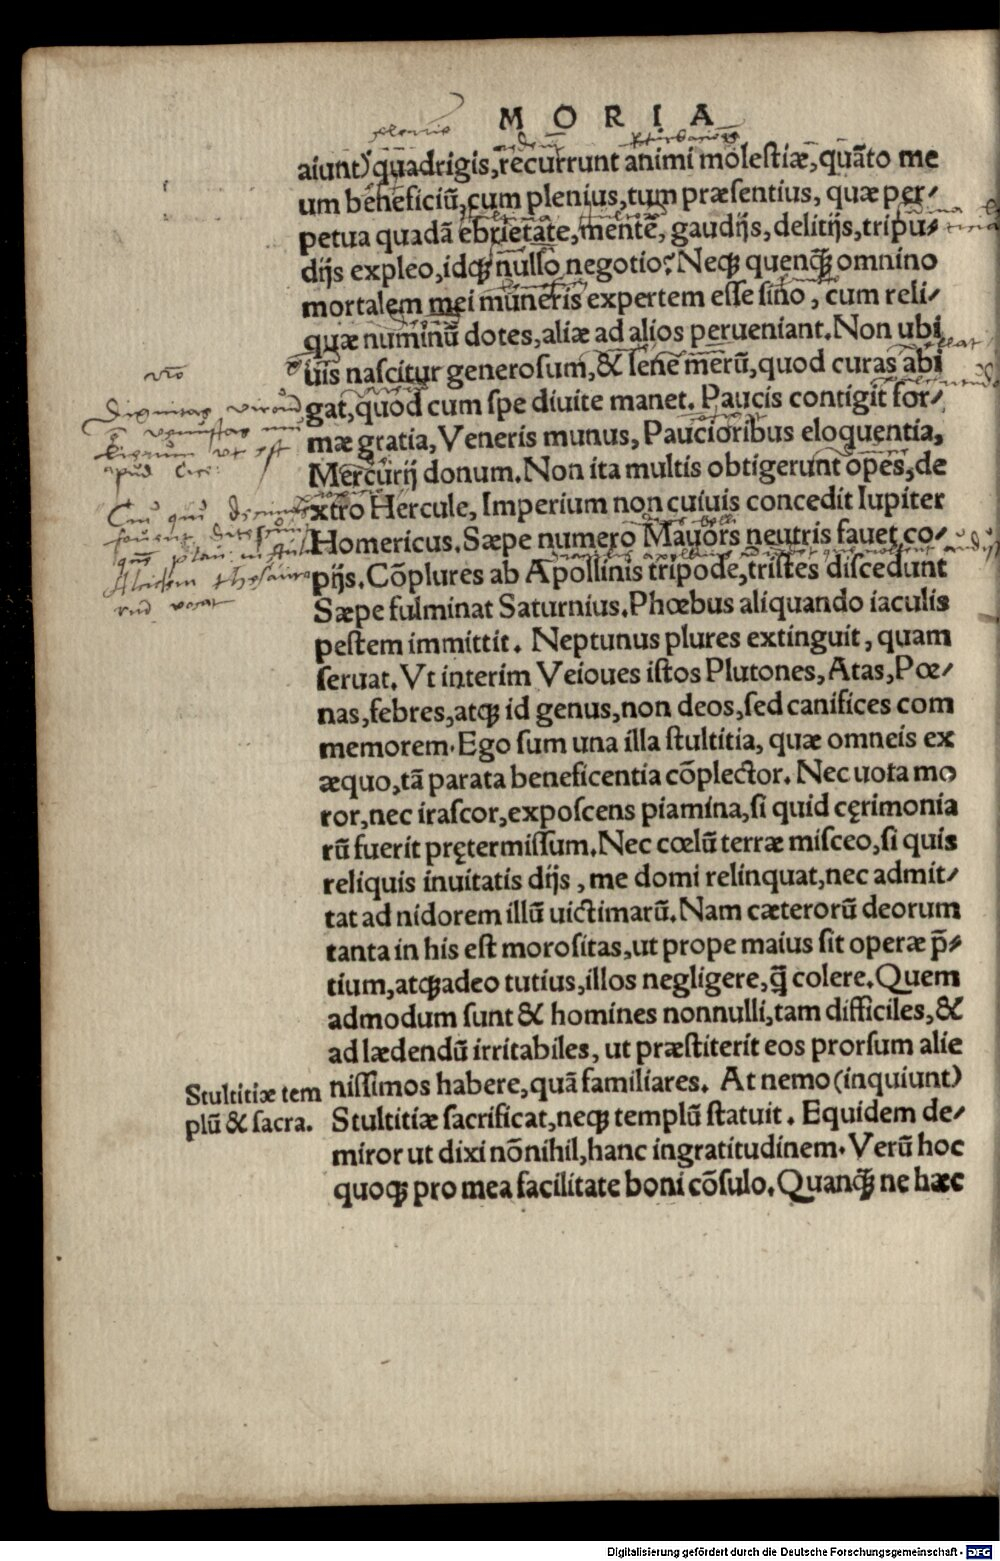 MORIA
aiunt) quadrigis, recurrunt animi molestiæ, quãto me
um beneficiũ, cum plenius, tum præsentius, quæ per⸗
petua quadã ebrietate, mentẽ, gaudijs, delitijs, tripu⸗
dijs expleo, idqꝫ nullo negotio? Neqꝫ quenqꝫ̃ omnino
mortalem mei muneris expertem esse sino, cum reli⸗
quæ numinũ dotes, aliæ ad alios perueniant. Non ubi
uis nascitur generosum, & lene merũ, quod curas abi
gat, quod cum spe diuite manet. Paucis contigit for⸗
mæ gratia, Veneris munus, Paucioribus eloquentia,
Mercurij donum. Non ita multis obtigerunt opes, de
xtro Hercule, Imperium non cuiuis concedit Iupiter
Homericus. Sæpe numero Mauors neutris fauet co⸗
pijs. Cõplures ab Apollinis tripode, tristes discedunt
Sæpe fulminat Saturnius. Phœbus aliquando iaculis
pestem immittit. Neptunus plures extinguit, quam
seruat. Vt interim Veioues istos Plutones, Atas, Pœ⸗
nas, febres, atqꝫ id genus, non deos, sed canifices com
memorem. Ego sum una illa stultitia, quæ omneis ex
æquo, tã parata beneficentia cõplector. Nec uota mo
ror, nec irascor, exposcens piamina, si quid cęrimonia
rũ fuerit prętermissum. Nec cœlũ terræ misceo, si quis
reliquis inuitatis dijs, me domi relinquat, nec admit⸗
tat ad nidorem illũ uictimarũ. Nam cæterorũ deorum
tanta in his est morositas, ut prope maius sit operæ p̃⸗
tium, atqꝫ adeo tutius, illos negligere, q̃ colere. Quem
admodum sunt & homines nonnulli, tam difficiles, &
ad lædendũ irritabiles, ut præstiterit eos prorsum alie
nissimos habere, quã familiares. At nemo (inquiunt)
Stultitiæ tem
plũ & sacra.
Stultitiæ sacrificat, neqꝫ templũ statuit. Equidem de⸗
miror ut dixi nõnihil, hanc ingratitudinem. Verũ hoc
quoqꝫ pro mea facilitate boni cõsulo. Quanqꝫ̃ ne hæc
Digitalisierung gefördert durch die Deutsche Forschungsgemeinschaft - DFG